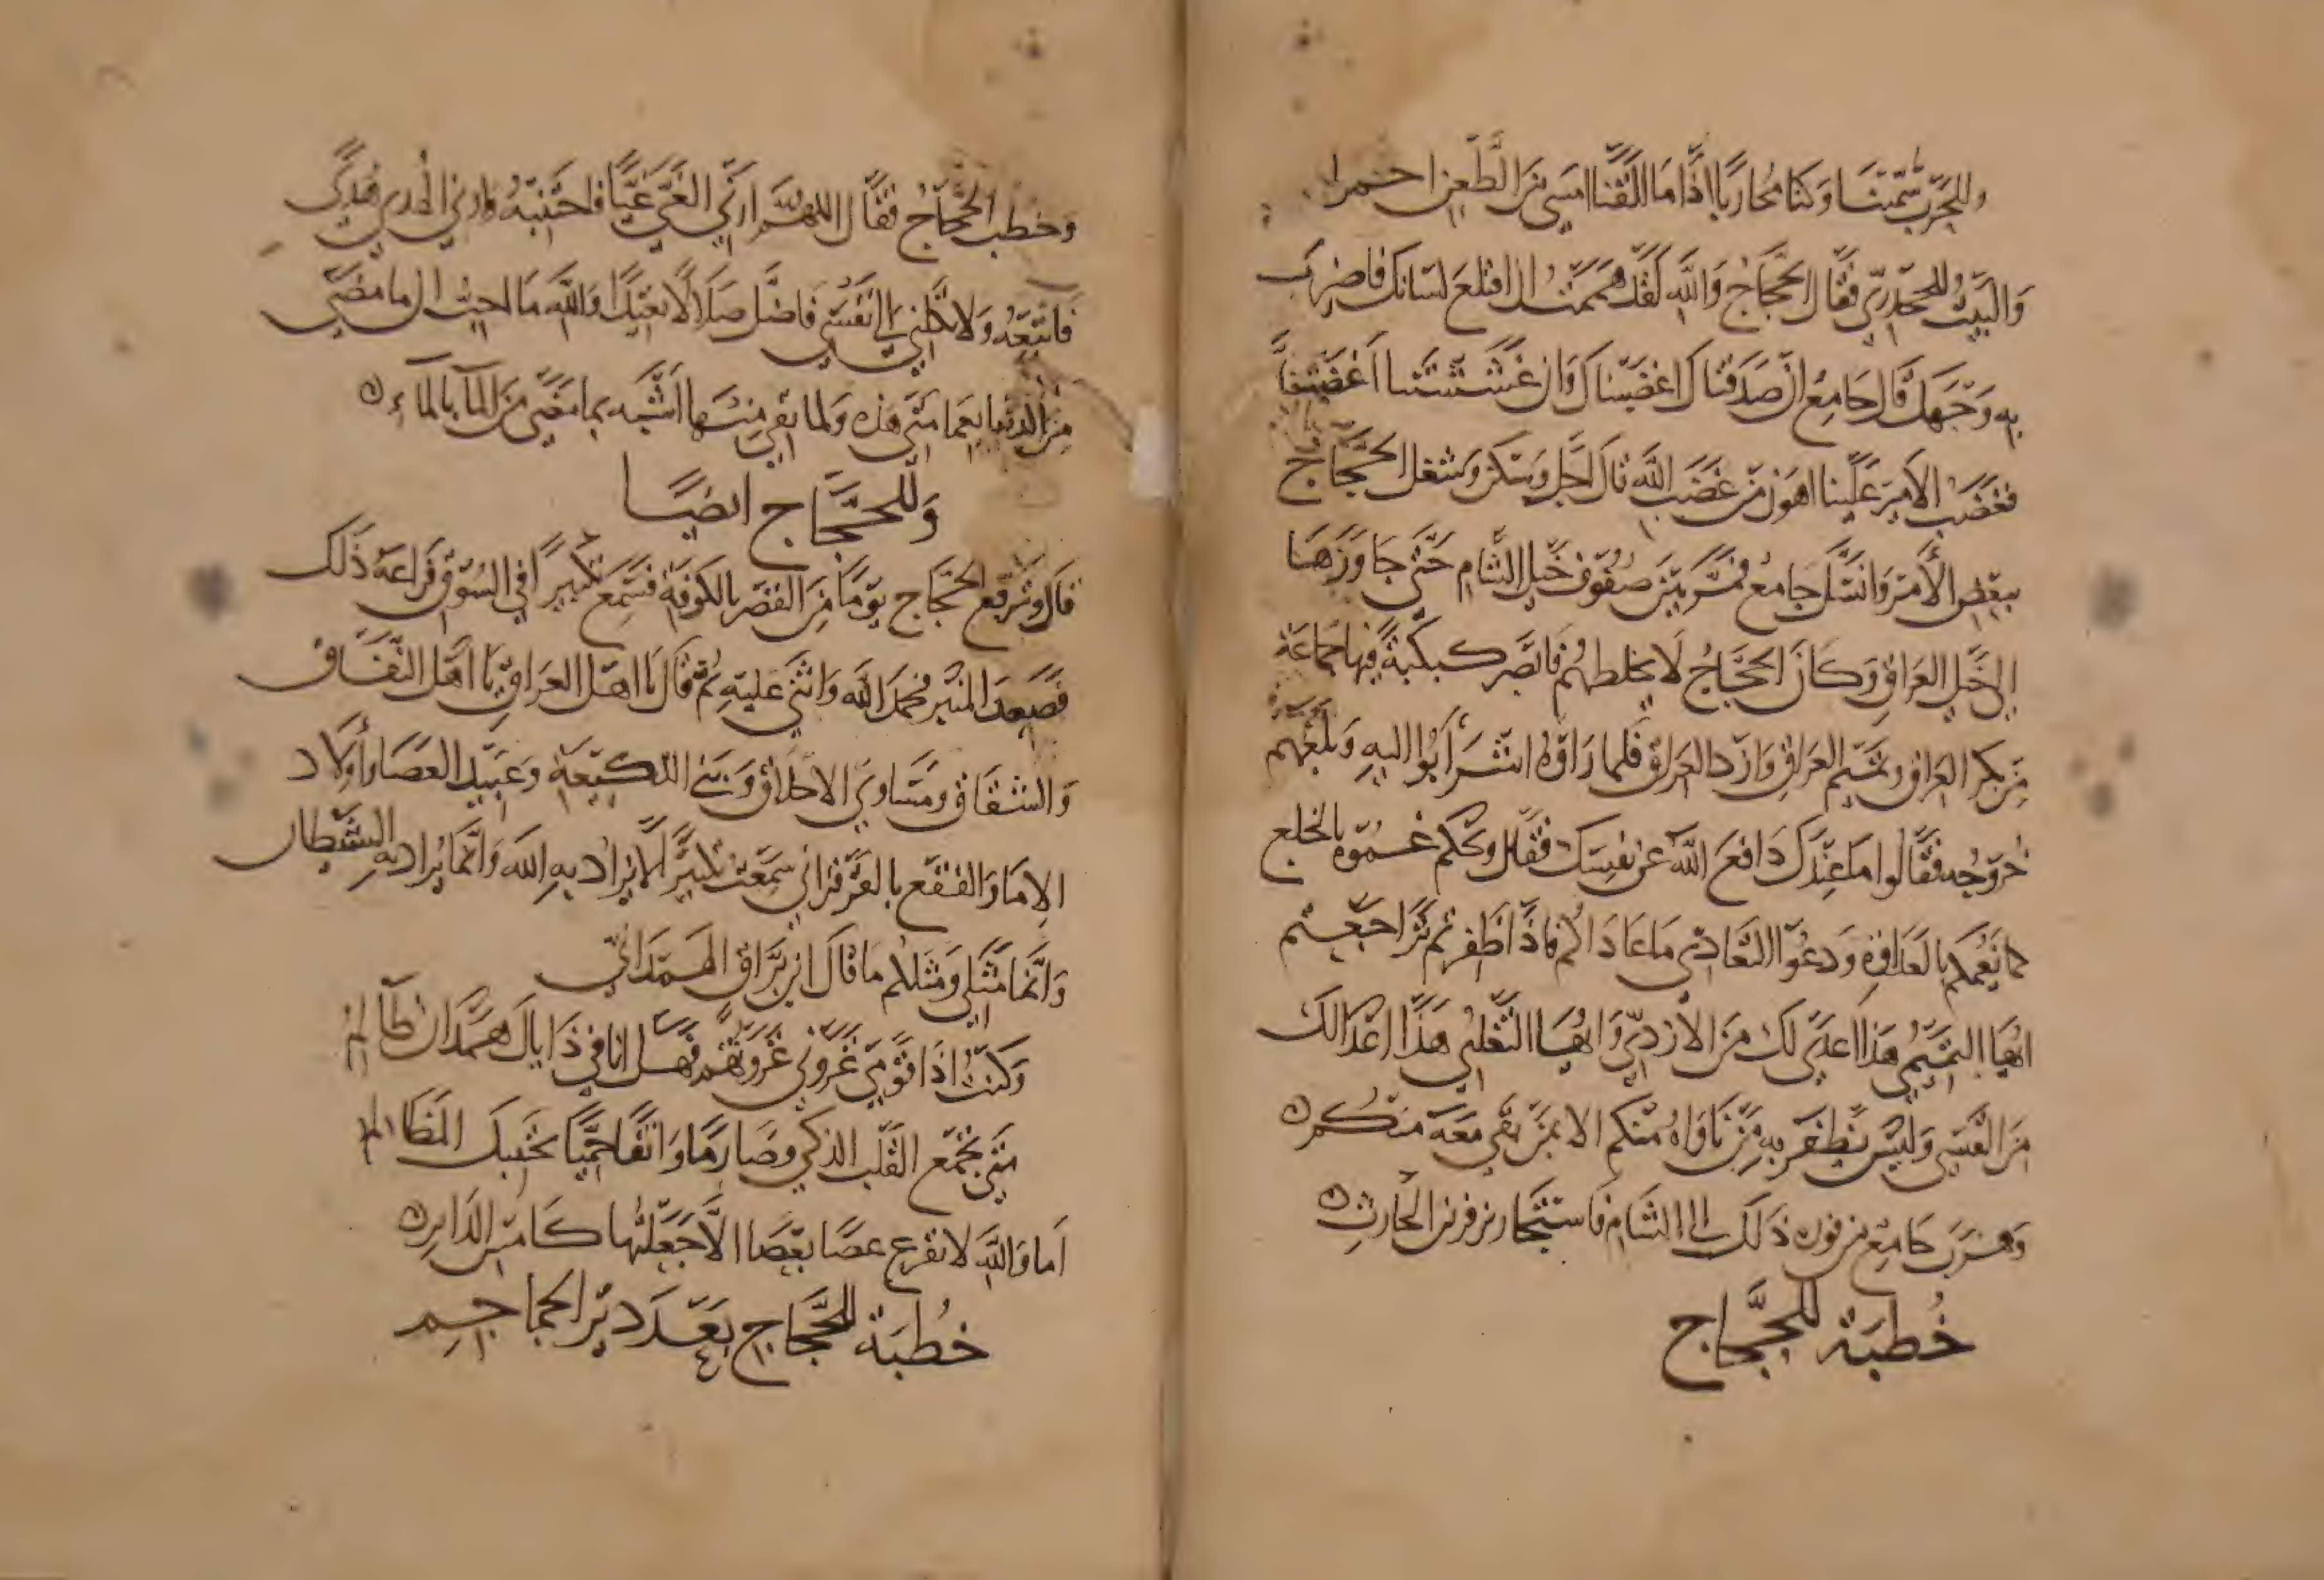 وللحرب سمينا وكنا محاربا اذا ما القنا امسى من الطعن احمرا
والبيت للخدري فقال الحجاج والله لقد هممت ان اقلع لسانك فاضرب
به وجهك قال جامع ان صدقناك اغضبناك وان غششناك اغضبنا
فغضب الامير علينا اهون من غضب الله قال اجل وسكن وشغل الحجاج
ببعض الأمر وانسل جامع فمر بين صفوف خيل الشام حتى جاوزها
الى خيل العراق وكان الحجاج لا يخلطهم فابصر كبكبة فيها جماعة
من بكر العراق وتميم العراق وازد العراق فلما راوه اشرأبوا اليه وبلغهم
خروجه فقالوا ما عندك دافع الله عن نفسك فقال ويحكم غموه بالخلع
كما يعمكم بالعداوة ودعوا التعادي ما عاداكم فاذا ظفرتم تراجعتم
ايها التميمي هذا اعدى لك من الأزدي وايها التغلبي هذا اعدا لك
من القيسي وليس يظفر به من ناواه منكم الا بمن بقي معه منكم ه
وهرب جامع من فوره ذلك الى الشام فاستجار بزفر بن الحارث ه
خطبة للحجاج
وخطب الحجاج فقال اللهم ارني الغي غيا فاجتنبه وارني الهدى هدى
فاتبعه ولا تكلني الى نفسي فاضل ضلالا بعيدا والله ما احب ان ما مضى
من الدنيا بعمامتي هذه ولما بقي منها اشبه بما مضى من الما بالماء ه
وللحجاج ايضا
قال وشرقع الحجاج يوما من القصر بالكوفة فسمع تكبيرا في السوق فراعه ذلك
فصعد المنبر فحمد الله واثنى عليه ثم قال يا اهل العراق يا اهل النفاق
والشقاق ومساوي الاخلاق وبني اللكيعة وعبيد العصا وأولاد
الاما والفقع بالقرقر اني سمعت تكبيرا لا يراد به الله وانما يراد به الشيطان
وانما مثلي ومثلكم ما قال ابن براق الهمداني
وكنت اذا قوم غزوني غزوتهم فهل انا في ذا يال همدان ظالم
متى تجمع القلب الذكي وصارما وانفا حميا تجتنبك المظالم
اما والله لا تقرع عصا بعصا الا جعلتها كامس الدابر ه
خطبة للحجاج بعد دير الجماجم